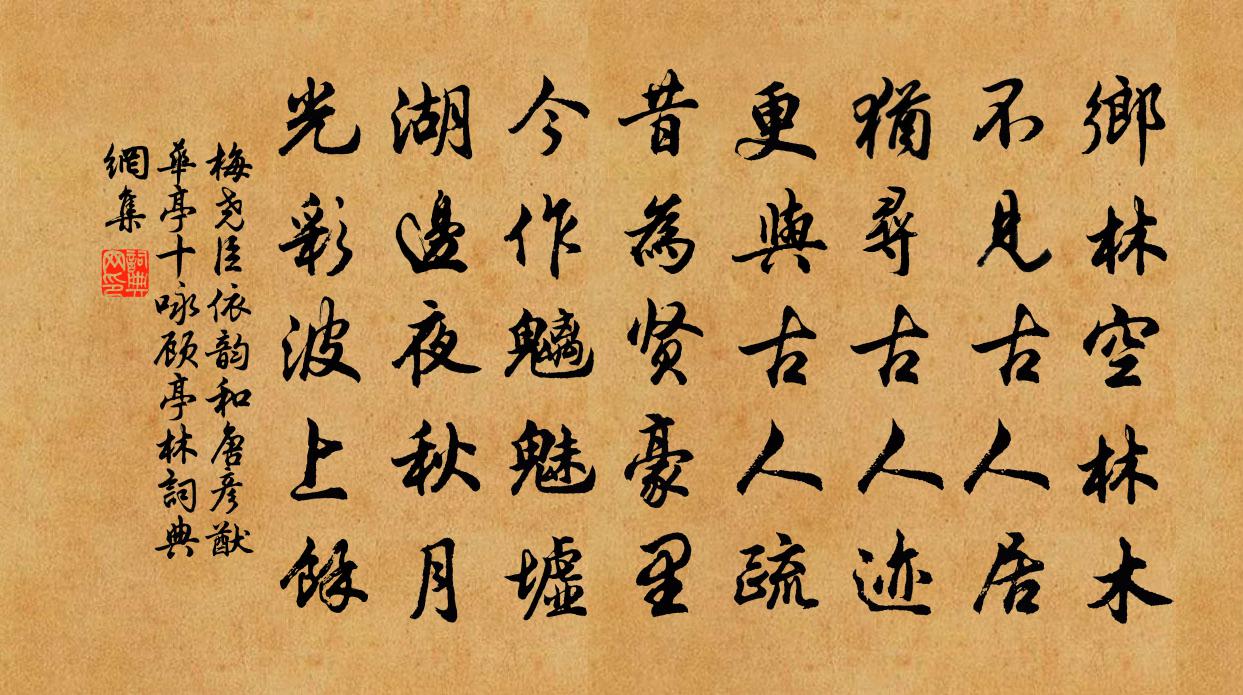 鄉林空林木
不見古人居
猶尋古人迹
更與古人疏
昔為贤豪里
今作魑魅墟
湖邊夜秋月
光彩波上餘
梅尧臣依韵和唐彦猷
華亭十咏顾亭林詞典
網集
詞典
网印